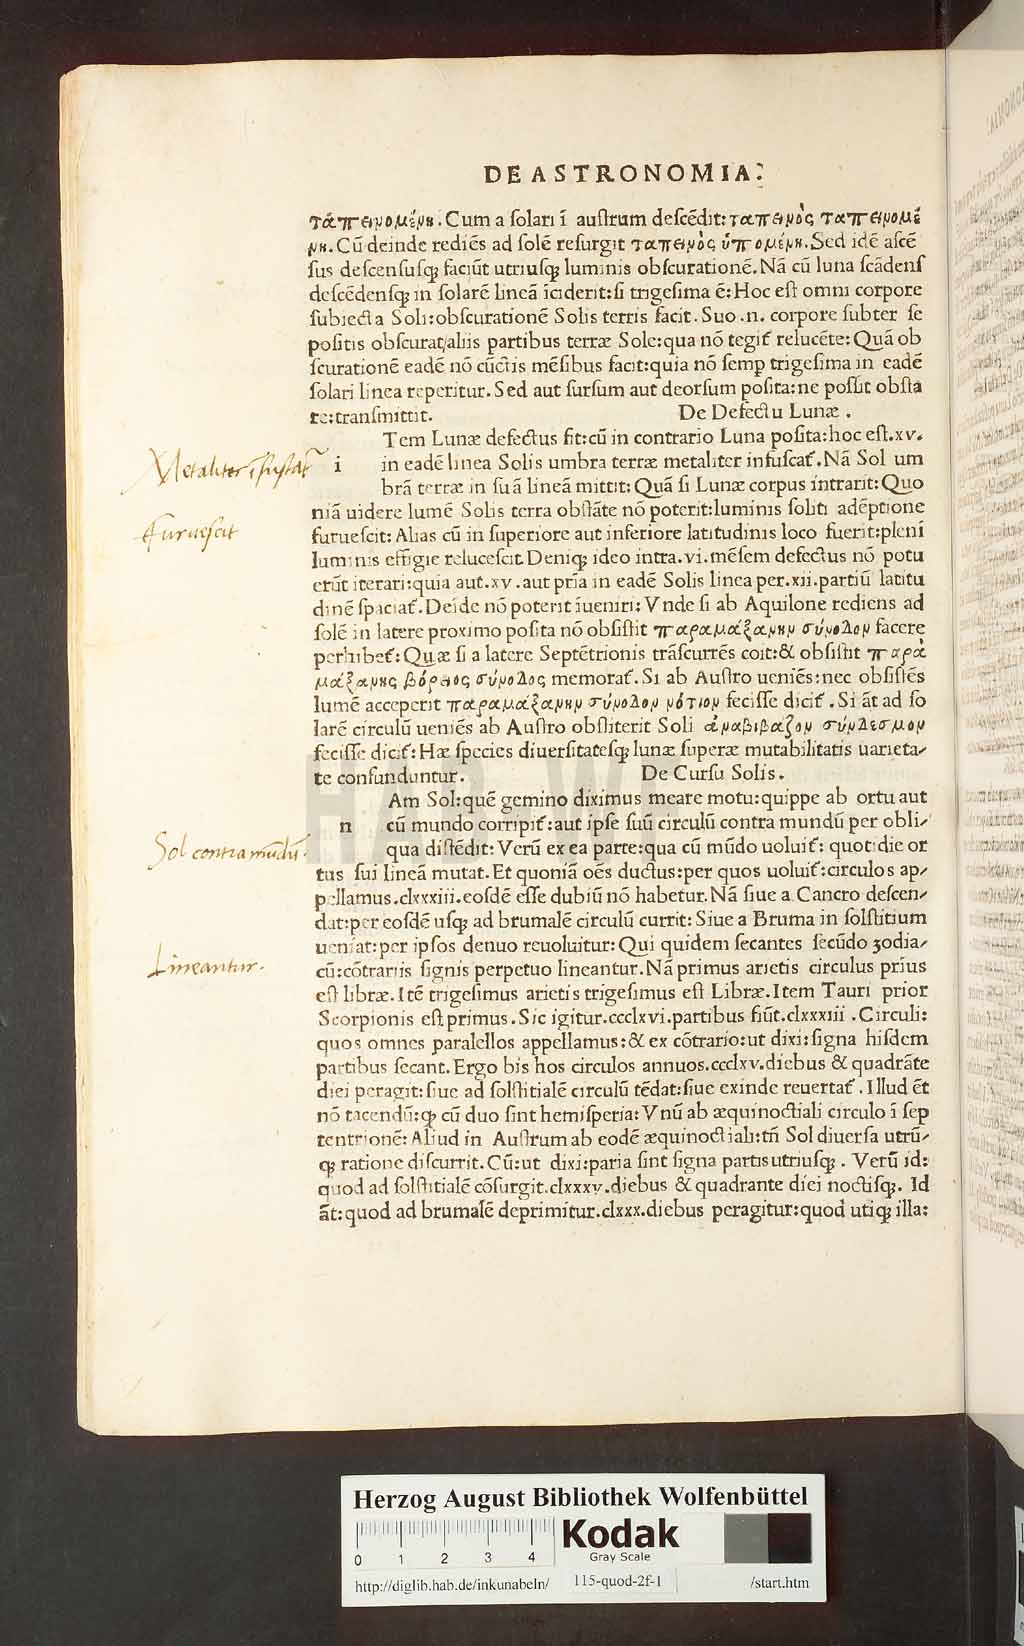 DE ASTRONOMIA:
ταπεινομένη. Cum a ſolari ī auſtrum deſcēdit: ταπεινὸς ταπεινομέ
νη. Cū deinde rediēs ad ſolē reſurgit ταπεινὸς ὑπομένη. Sed idē aſcē
ſus deſcenſuſqꝫ faciūt utriuſqꝫ luminis obſcurationē. Nā cū luna ſcādenſ
deſcēdenſqꝫ in ſolarē lineā īciderit: ſi trigeſima ē: Hoc eſt omni corpore
ſubiecta Soli: obſcurationē Solis terris facit. Suo .n. corpore ſubter ſe
poſitis obſcurat/aliis partibus terræ Sole: qua nō tegit᷑ relucēte: Quā ob
ſcurationē eadē nō cūctis mēſibus facit: quia nō ſemꝑ trigeſima in eadē
ſolari linea reperitur. Sed aut ſurſum aut deorſum poſita: ne poſſit obſta
re: tranſmittit. De Defectu Lunæ.
Tem Lunæ defectus fit: cū in contrario Luna poſita: hoc eſt. xv.
Metaliter ifuscat᷑
i in eadē linea Solis umbra terræ metaliter infuſcat᷑. Nā Sol um
brā terræ in ſuā lineā mittit: Quā ſi Lunæ corpus intrarit: Quo
niā uidere lumē Solis terra obſtāte nō poterit: luminis ſoliti adēptione
furuescit
furueſcit: Alias cū in ſuperiore aut inferiore latitudinis loco fuerit: pleni
luminis effigie reluceſcit. Deniqꝫ ideo intra .vi. mēſem defectus nō potu
erūt iterari: quia aut .xv. aut pria in eadē Solis linea per .xii. partiū latitu
dinē ſpaciat᷑. Deīde nō poterit īueniri: Vnde ſi ab Aquilone rediens ad
ſolē in latere proximo poſita nō obſiſtit παραμάξανην σύνοδον facere
perhibet᷑: Quæ ſi a latere Septētrionis trāſcurrēs coit: & obſiſtit παρὰ
μάξανης βόρειος σύνοδος memorat᷑. Si ab Auſtro ueniēs: nec obſiſtēs
lumē acceperit παραμάξανην σύνοδον νότιον feciſſe dicit᷑. Si āt ad ſo
larē circulū ueniēs ab Auſtro obſtiterit Soli ἀναβιβαζον σύνδεσμον
feciſſe dicit᷑: Hæ ſpecies diuerſitateſqꝫ lunæ ſuperæ mutabilitatis uarieta/
te confunduntur. De Curſu Solis.
Am Sol: quē gemino diximus meare motu: quippe ab ortu aut
n cū mundo corripit᷑: aut ipſe ſuū circulū contra mundū per obli/
Sol contra mūdū.
qua diſtēdit: Verū ex ea parte: qua cū mūdo uoluit᷑: quotidie or
tus ſui lineā mutat. Et quoniā oēs ductus: per quos uoluit᷑: circulos ap/
pellamus .clxxxiii. eoſdē eſſe dubiū nō habetur. Nā ſiue a Cancro deſcen/
dat: per eoſdē uſqꝫ ad brumalē circulū currit: Siue a Bruma in ſolſtitium
ueniat: per ipſos denuo reuoluitur: Qui quidem ſecantes ſecūdo zodia/
Lineantur.
cū: cōtrariis ſignis perpetuo lineantur. Nā primus arietis circulus prius
eſt libræ. Itē trigeſimus arietis trigeſimus eſt Libræ. Item Tauri prior
Scorpionis eſt primus. Sic igitur .ccclxvi. partibus fiūt .clxxxiii. Circuli:
quos omnes paralellos appellamus: & ex cōtrario: ut dixi: ſigna hiſdem
partibus ſecant. Ergo bis hos circulos annuos .ccclxv. diebus & quadrāte
diei peragit: ſiue ad ſolſtitialē circulū tēdat: ſiue exinde reuertat᷑. Illud ēt
nō tacendū: ꝙ cū duo ſint hemiſperia: Vnū ab æquinoctiali circulo ī ſep
tentrionē: Aliud in Auſtrum ab eodē æquinoctiali: tn̄ Sol diuerſa utrū/
qꝫ ratione diſcurrit. Cū: ut dixi: paria ſint ſigna partis utriuſqꝫ. Verū id:
quod ad ſolſtitialē cōſurgit .clxxxv. diebus & quadrante diei noctiſqꝫ. Id
āt: quod ad brumalē deprimitur .clxxx. diebus peragitur: quod utiqꝫ illa:
HAB-WF
Herzog August Bibliothek Wolfenbüttel
0 1 2 3 4
Kodak
Gray Scale
http://diglib.hab.de/inkunabeln/ 115-quod-2f-1 /start.htm